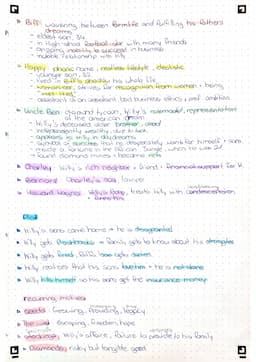 Biff: wavering between farmlife and fulfilling his fathers dreams
- eldest son, 34
- in high-school football-star with many friends
- ongoing inability to succeed in business
- troubled relationship with Willy
Happy: phone name, realises lifestyle, idealistic
- younger son, 32
- lived in Biff's shadow his whole life
- womanizer, strives for recognition from women + being "well-liked"
- assistant of an assistant, bad business ethics, ambition
Uncle Ben: diamond tycoon, Willy's rolemodel, representation of the american dream
- Willy's deceased older brother
- independently wealthy due to luck
- appears to Willy in daydreams
- symbol of success that he desperately want for himself + sons
- made a fortune in the African "Jungle", when he was 21
- found diamond mines + became rich
Charley: Willy's rich neighbor + friend + financial support for W.
Bernard: Charley's son, lawyer
Howard Wagner: Willy's boss, treats Willy with condescension
Plot
Willy's sons come home → he is disappointed
Willy gets flashbacks → family gets to know about his struggles
Willy gets fired, Biff's loan gets denied
Willy realises that his sons love him + he is not alone
Willy kills himself so his sons get the insurance money
recurring motives
seeds: Growing, Providing, legacy
escaping, freedom, hope
stockings: Willy's affaire, failure to provide to his family
Diamonds: risky but tangible good